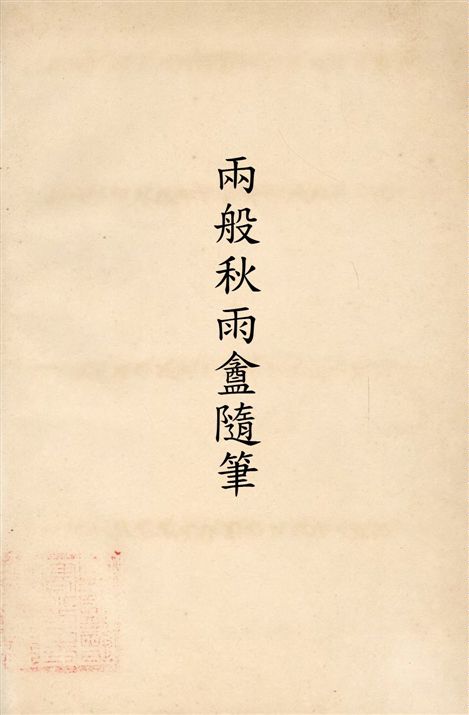 兩般秋雨盦隨筆